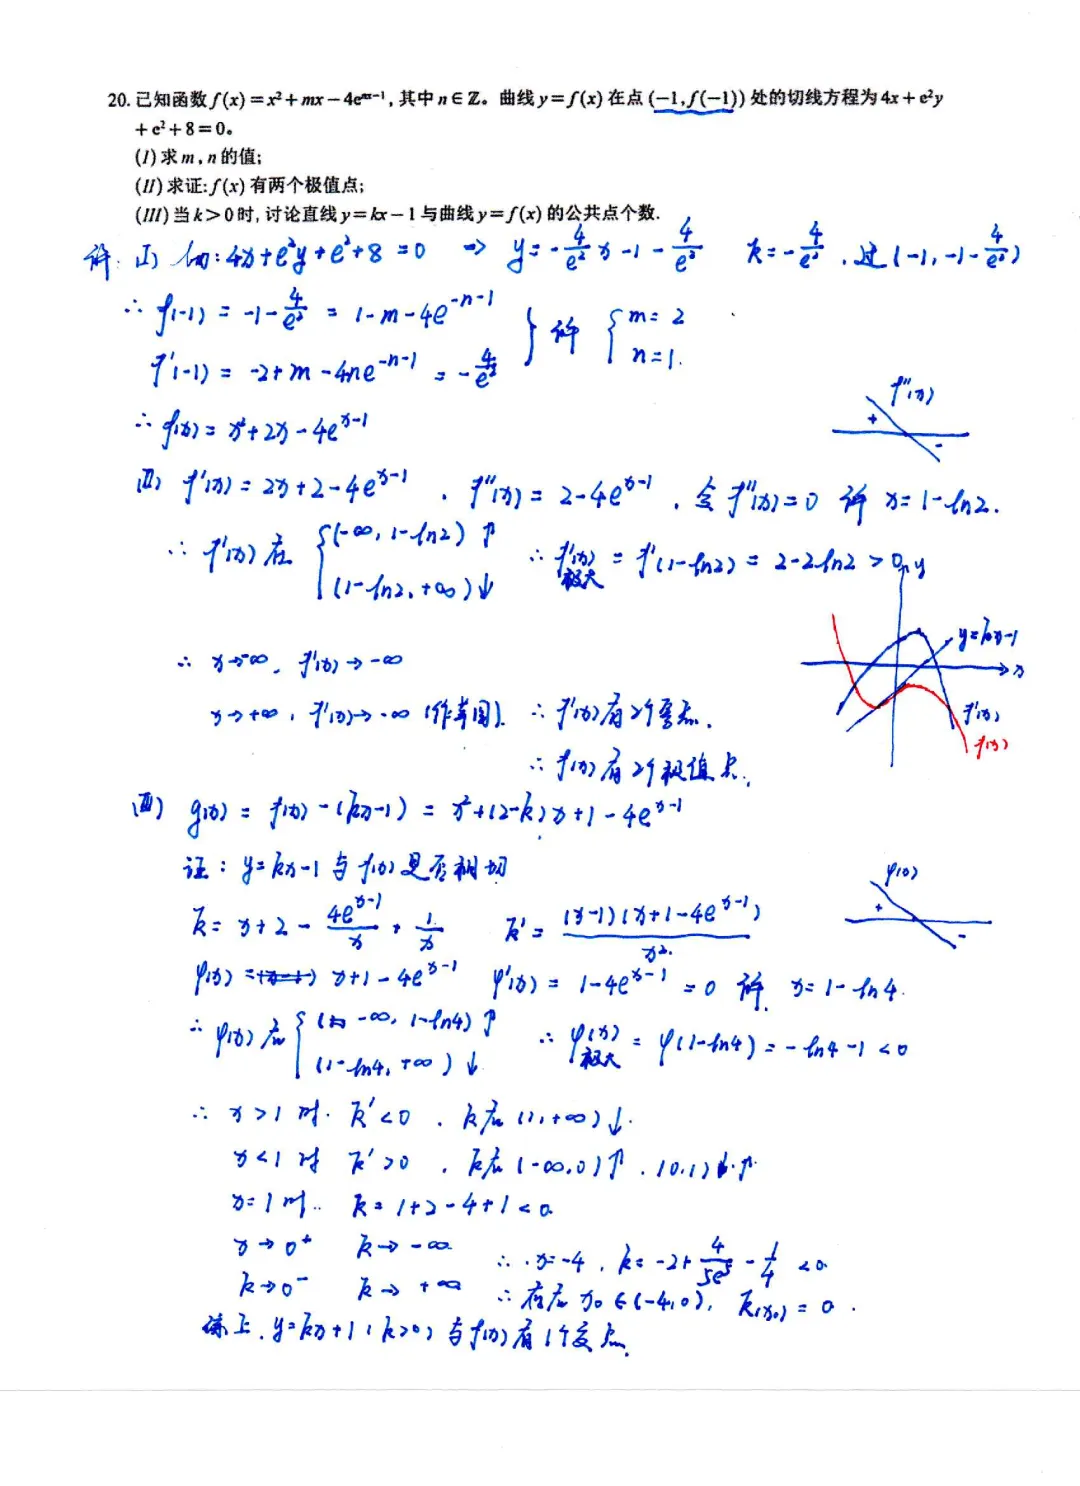 20. 已知函数 f(x)=x²+mx-4eⁿˣ⁻¹, 其中 n∈Z。曲线 y=f(x) 在点 (-1,f(-1)) 处的切线方程为 4x+e²y
+e²+8=0。
(I) 求 m,n 的值;
(II) 求证: f(x) 有两个极值点;
(III) 当 k>0 时, 讨论直线 y=kx-1 与曲线 y=f(x) 的公共点个数.
解: (I) l切: 4x+e²y+e²+8=0 ⇒ y=-4/e² x-1-4/e² k=-4/e², 过(-1,-1-4/e²)
∴ f(-1)=-1-4/e²=1-m-4e⁻ⁿ⁻¹
f'(-1)=-2+m-4ne⁻ⁿ⁻¹=-4/e² } 解 { m=2 n=1.
∴ f(x)=x²+2x-4eˣ⁻¹
f''(x)
+
-
(II) f'(x)=2x+2-4eˣ⁻¹, f''(x)=2-4eˣ⁻¹, 令 f''(x)=0 解 x=1-ln2.
∴ f'(x) 在 { (-∞,1-ln2)↑ (1-ln2,+∞)↓ ∴ f'(x)极大=f'(1-ln2)=2-2ln2>0
∴ x→-∞, f'(x)→-∞
x→+∞, f'(x)→-∞ (作草图). ∴ f'(x)有2个零点.
∴ f(x)有2个极值点.
y
y=kx-1
x
f'(x)
f(x)
(III) g(x)=f(x)-(kx-1)=x²+(2-k)x+1-4eˣ⁻¹
证: y=kx-1 与 f(x) 是否相切
k=x+2-4eˣ⁻¹/x+1/x k'=(x-1)(x+1-4eˣ⁻¹)/x²
φ(x)
+
-
φ(x)=x+1-4eˣ⁻¹ φ'(x)=1-4eˣ⁻¹=0 解 x=1-ln4.
∴ φ(x)在 { (-∞,1-ln4)↑ (1-ln4,+∞)↓ ∴ φ(x)极大=φ(1-ln4)=-ln4-1<0
∴ x>1 时. k'<0, k在(1,+∞)↓.
x<1 时 k'>0, k在(-∞,0)↑, (0,1)↑.
x=1时.. k=1+2-4+1<0
x→0⁺ k→-∞.
k→0⁻ k→+∞
∴ x=-4, k=-2+4/5e⁵-1/4<0
∴ 存在 x₀∈(-4,0), k(x₀)=0.
综上, y=kx+1 (k>0) 与 f(x)有1个交点.